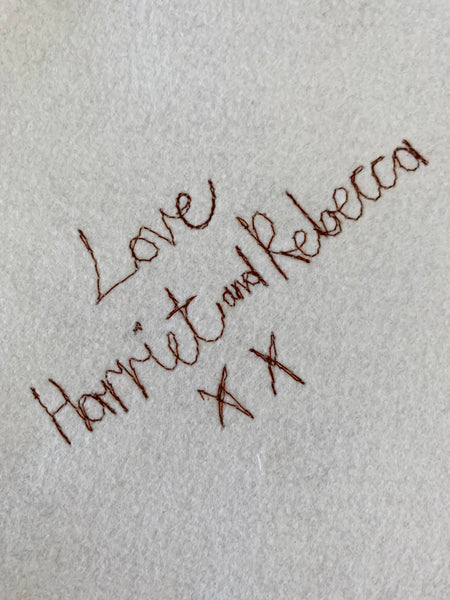 Love
Harriet and Rebecca
X X